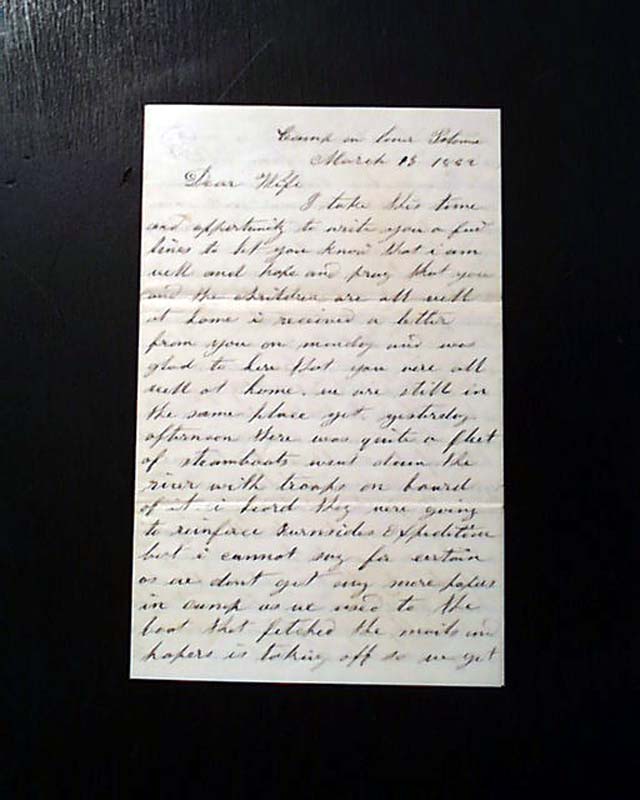 Camp on Lower Potomac
March 13 1862
Dear Wife
I take this time
and oppertunity to write you a few
lines to let you know that i am
well and hope and pray that you
and the children are all well
at home i received a letter
from you on monday and was
glad to here that you were all
well at home. we are still in
the same place yet. yesterday
afternoon there was quite a fleet
of steamboats went down the
river with troops on board
of it i heard they were going
to reinforce Burnsides Expedition
but i cannot say for certain
as we dont get any more papers
in camp as we used to the
boat that fetched the mails and
papers is taking off so we get